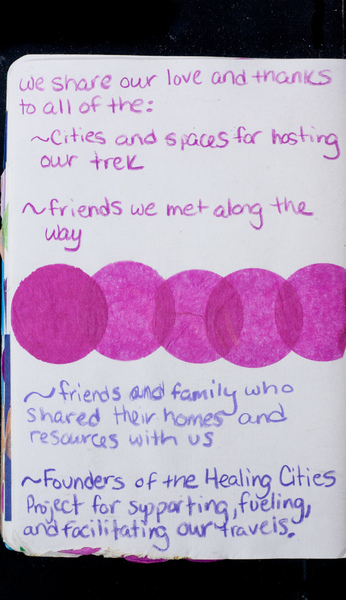 we share our love and thanks
to all of the:
~Cities and spaces for hosting
our trek
~friends we met along the
way
~friends and family who
shared their homes and
resources with us
~Founders of the Healing Cities
Project for supporting, fueling,
and facilitating our travels.